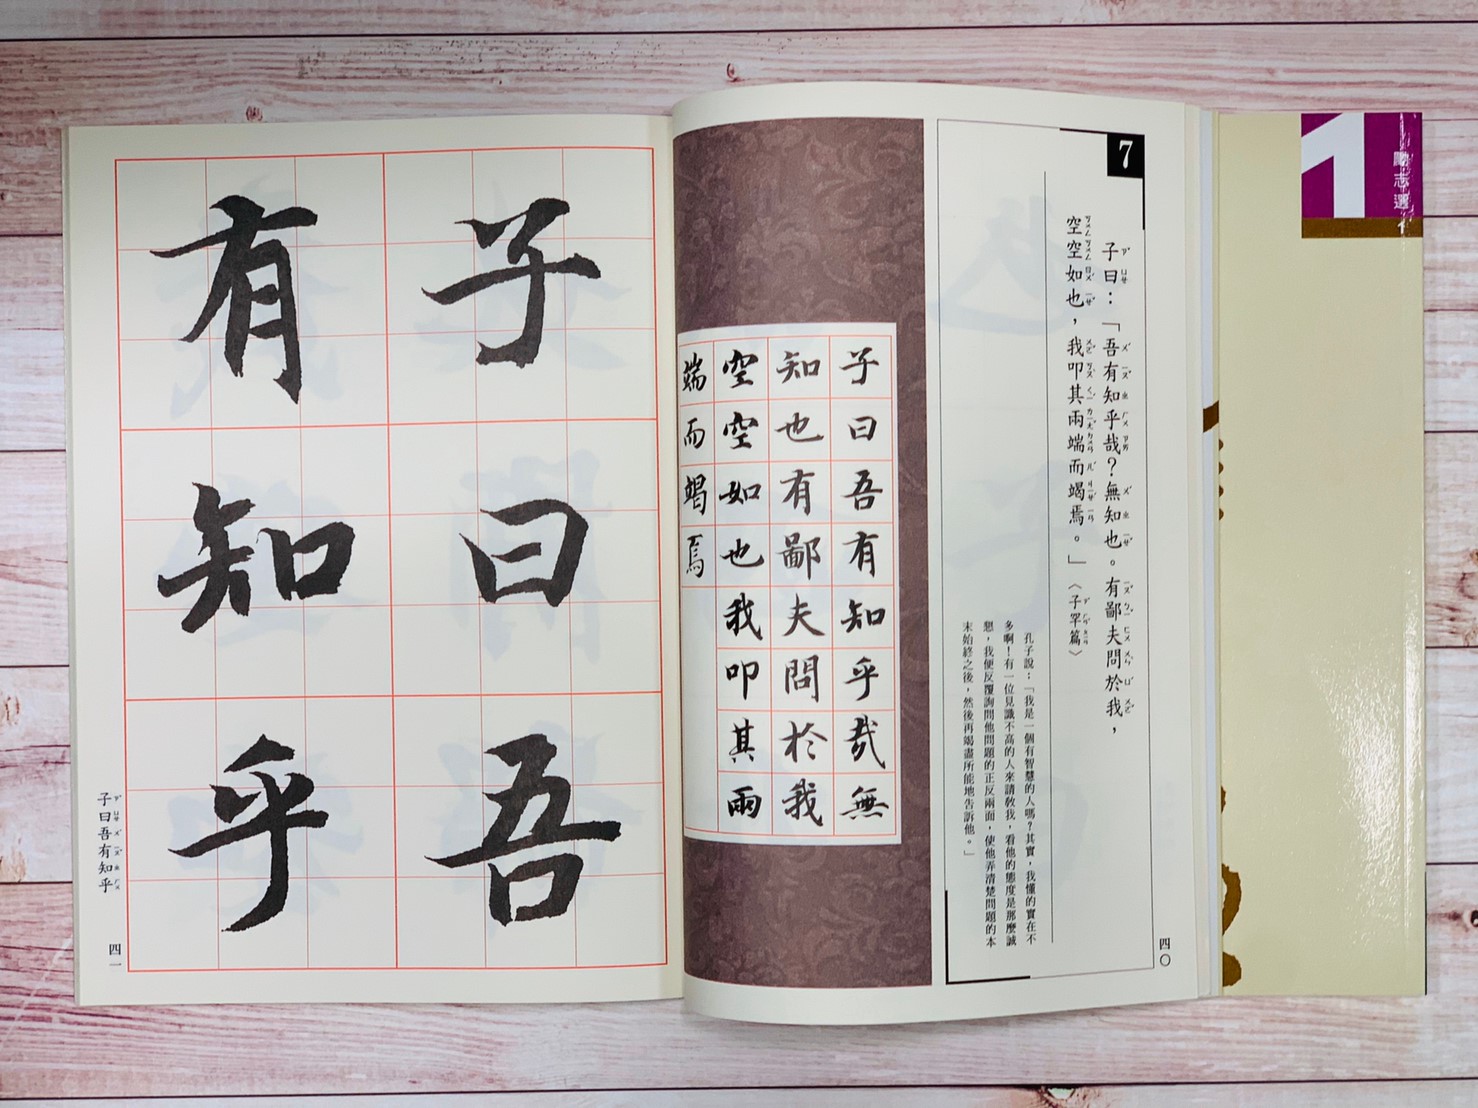 1
勵志選
7
子曰：「吾有知乎哉？無知也。有鄙夫問於我，
空空如也，我叩其兩端而竭焉。」〈子罕篇〉
孔子說：「我是一個有智慧的人嗎？其實，我懂的實在不
多啊！有一位見識不高的人來請教我，看他的態度是那麼誠
懇，我便反覆詢問他問題的正反兩面，使他弄清楚問題的本
末始終之後，然後再竭盡所能地告訴他。」
四〇
子曰吾有知乎哉無
知也有鄙夫問於我
空空如也我叩其兩
端而竭焉
子曰吾
有知乎
子曰吾有知乎
四一